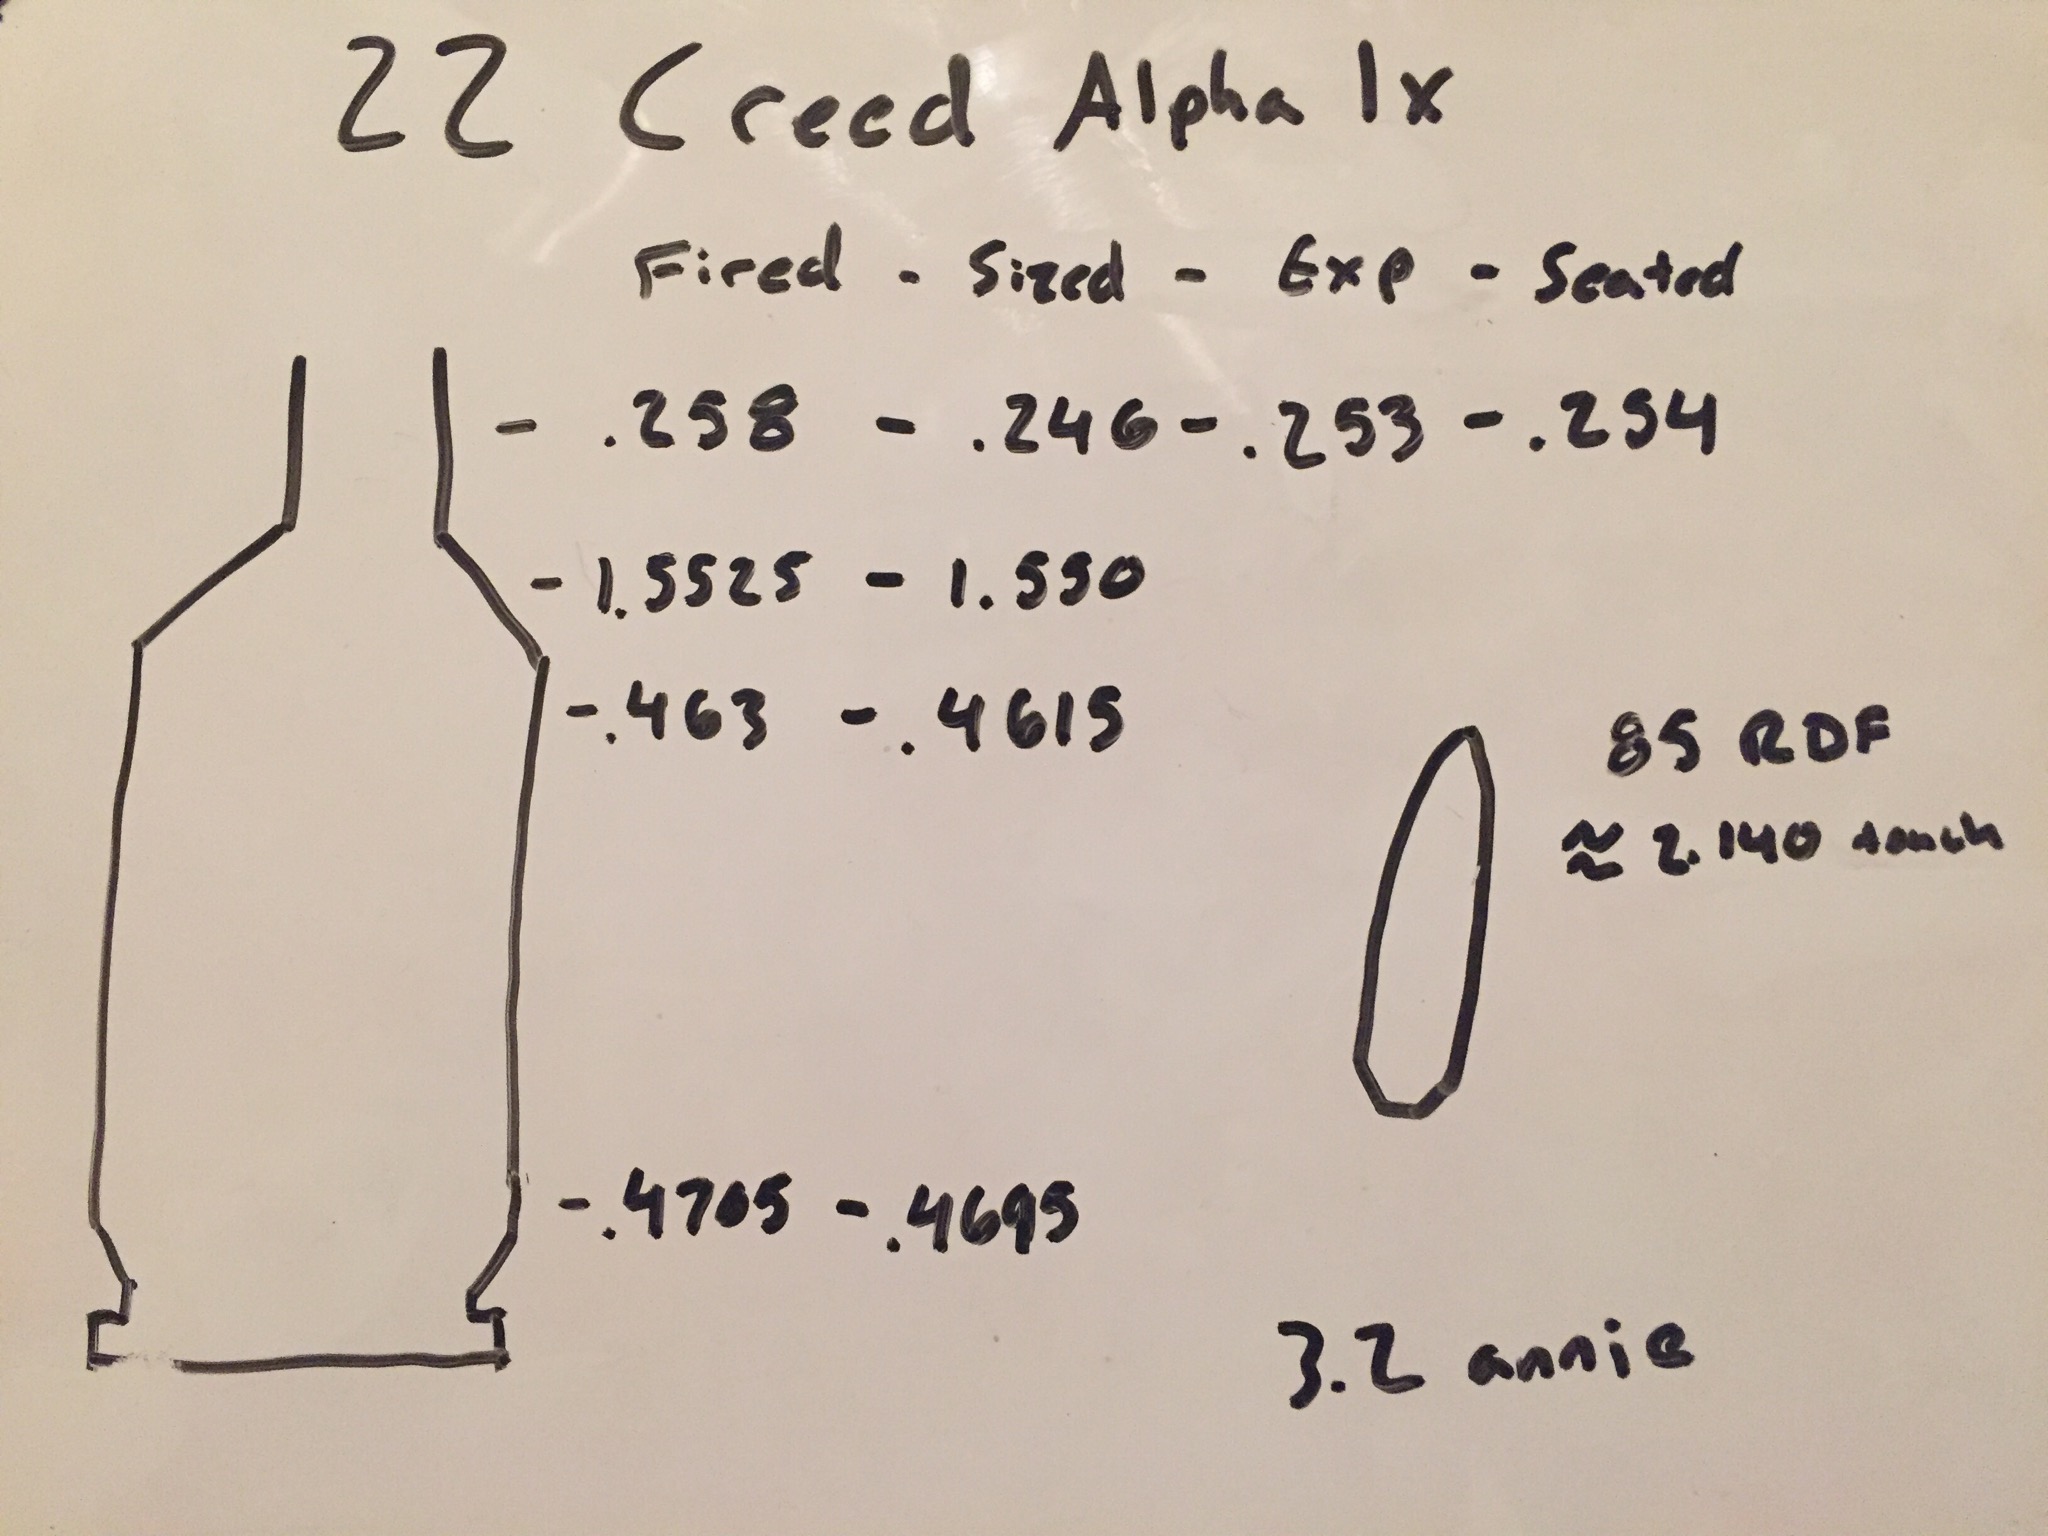 22 Creed Alpha 1x
Fired - Sized - Exp - Seated
- .258 - .246 - .253 - .254
- 1.5525 - 1.550
- .463 - .4615
85 RDF
≈ 2.140 touch
- .4705 - .4695
3.2 annie